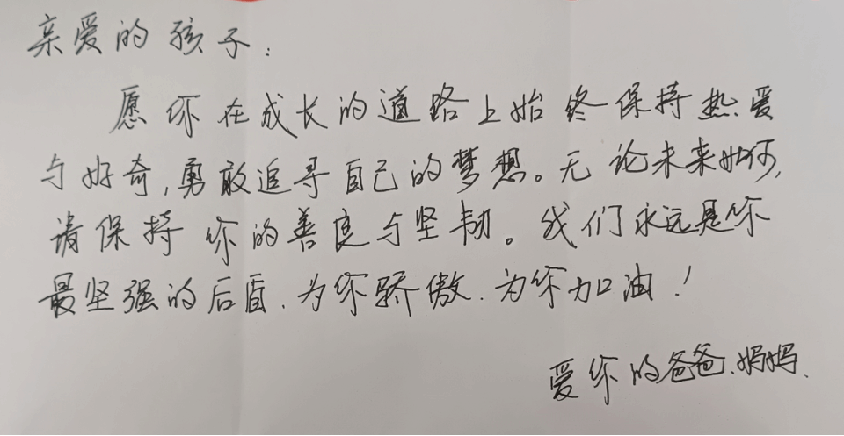 亲爱的孩子:
愿你在成长的道路上始终保持热爱
与好奇,勇敢追寻自己的梦想。无论未来如何,
请保持你的善良与坚韧。我们永远是你
最坚强的后盾.为你骄傲.为你加油!
爱你的爸爸.妈妈.